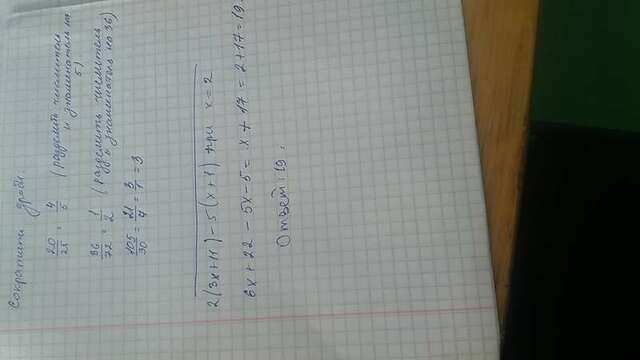 Сократить дроби
20/25 = 4/5 (разделить числитель и знаменатель на 5)
36/72 = 1/2 (разделить числитель и знаменатель на 36)
105/30 = 21/7 = 3/1 = 3
2(3x+11)-5(x+1) при x=2
6x+22-5x-5=x+17=2+17=19.
Ответ: 19.